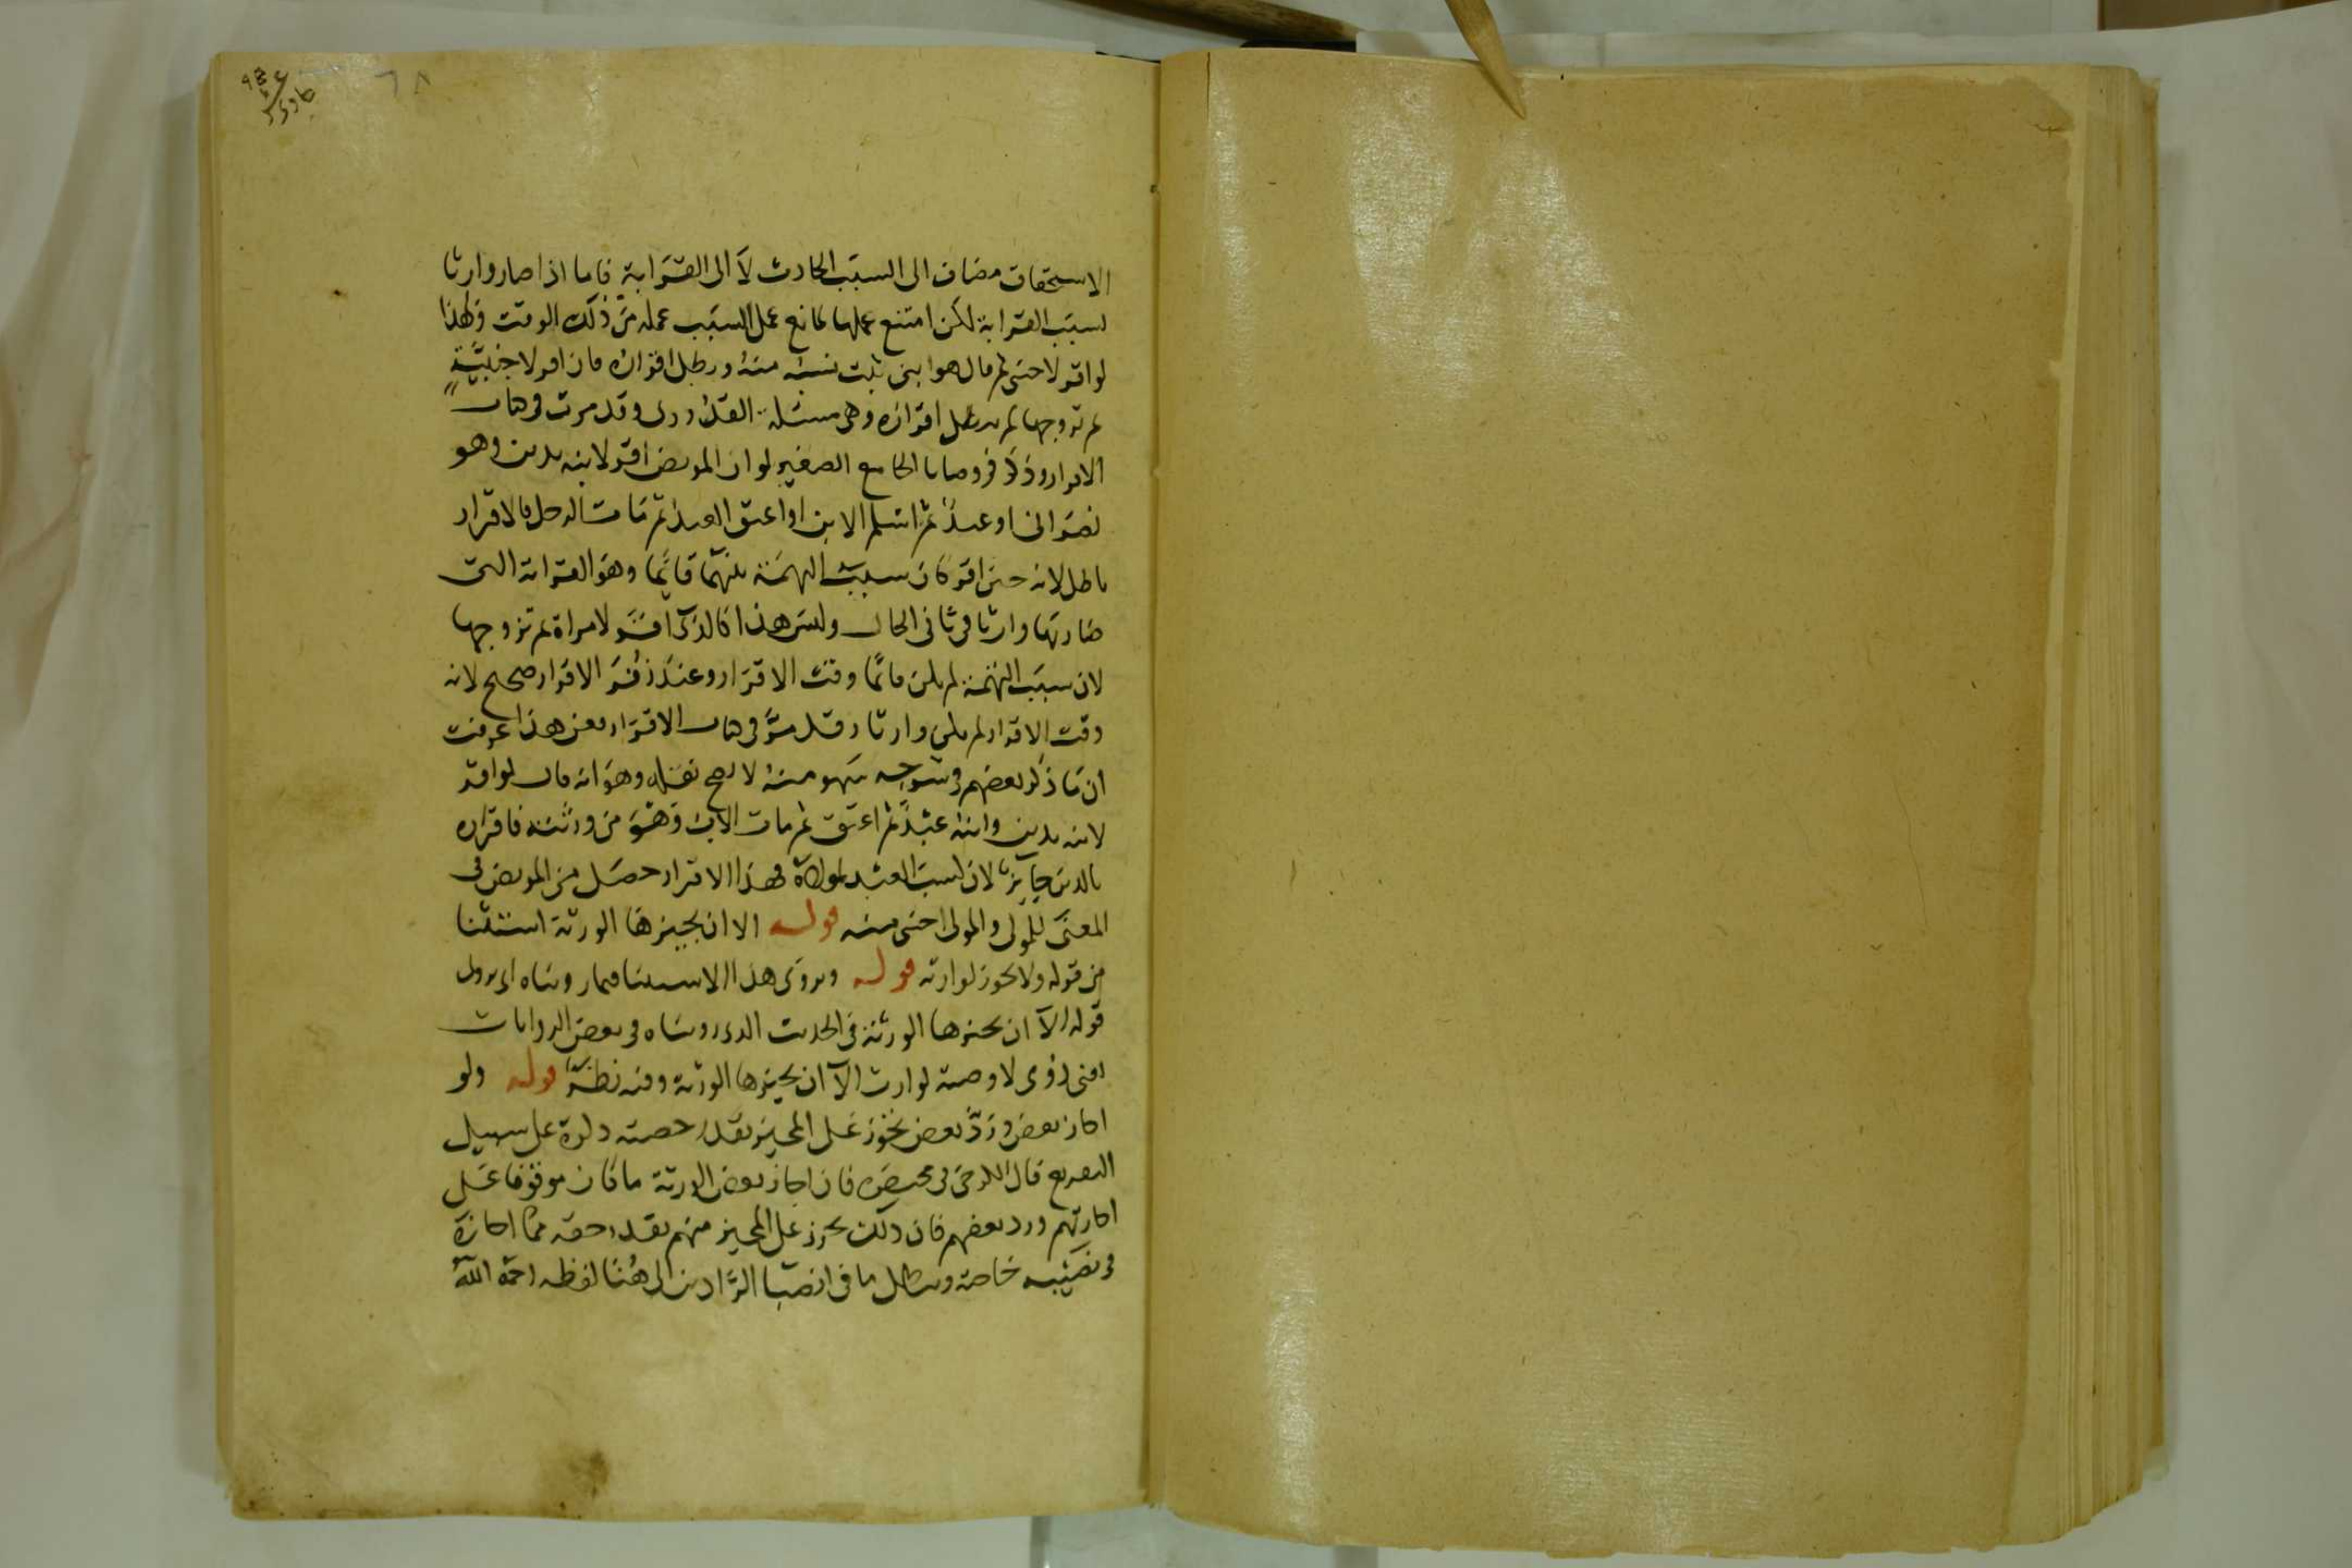 الاستحقاق مضاف الى السبب الحادث لا الى القرابة فاما اذا صار وارثا
بسبب القرابة لكن امتنع عملها لمانع عمل السبب عمله من ذلك الوقت ولهذا
لو اقر لاجنبى ثم قال هو ابنى ثبت نسبه منه وبطل اقراره فان اقر لاجنبية
ثم تزوجها لم يبطل اقراره وهى مسئلة القدورى وقد مرت فى كتاب
الاقرار وذكر فى وصايا الجامع الصغير لو ان المريض اقر لابنه بدين وهو
نصرانى او عبد ثم اسلم الابن او اعتق العبد ثم مات الرجل فالاقرار
باطل لانه حين اقر كان سبب التهمة بينهما قائما وهو القرابة التى
صار بها وارثا فى ثانى الحال وليس هذا كالذى اقر لامراة ثم تزوجها
لان سبب التهمة لم يكن قائما وقت الاقرار وعند زفر الاقرار صحيح لانه
وقت الاقرار لم يكن وارثا وقد مر فى كتاب الاقرار وعن هذا عرفت
ان ما ذكر بعضهم فى شرحه سهو منه لا يصح نقله وهو انه قال لو اقر
لابنه بدين وابنه عبد ثم اعتق ثم مات الاب وهو من ورثته فاقراره
بالدين جايز لان كسب العبد لمولاه فهذا الاقرار حصل من المريض فى
المعنى للمولى والمولى اجنبى منه قوله الا ان يجيزها الورثة استثنا
من قوله ولا يجوز لوارثه قوله ويروى هذا الاستثنا فيما رويناه اى يروى
قوله الا ان يجيزها الورثة فى الحديث الذى رويناه فى بعض الروايات
اعنى روى لا وصية لوارث الا ان يجيزها الورثة وفيه نظر قوله ولو
اجاز بعض ورد بعض يجوز على المجيز بقدر حصته ذكره على سبيل
التفريع قال الكرخى فى مختصره فان اجاز بعض الورثة ما كان موقوفا على
اجازتهم ورد بعضهم فان ذلك يجوز على المجيز منهم بقدر حقه مما اجازه
فى نصيبه خاصة ويبطل ما فى انصبا الرادين الى هنا لفظه رحمه الله
٦٨